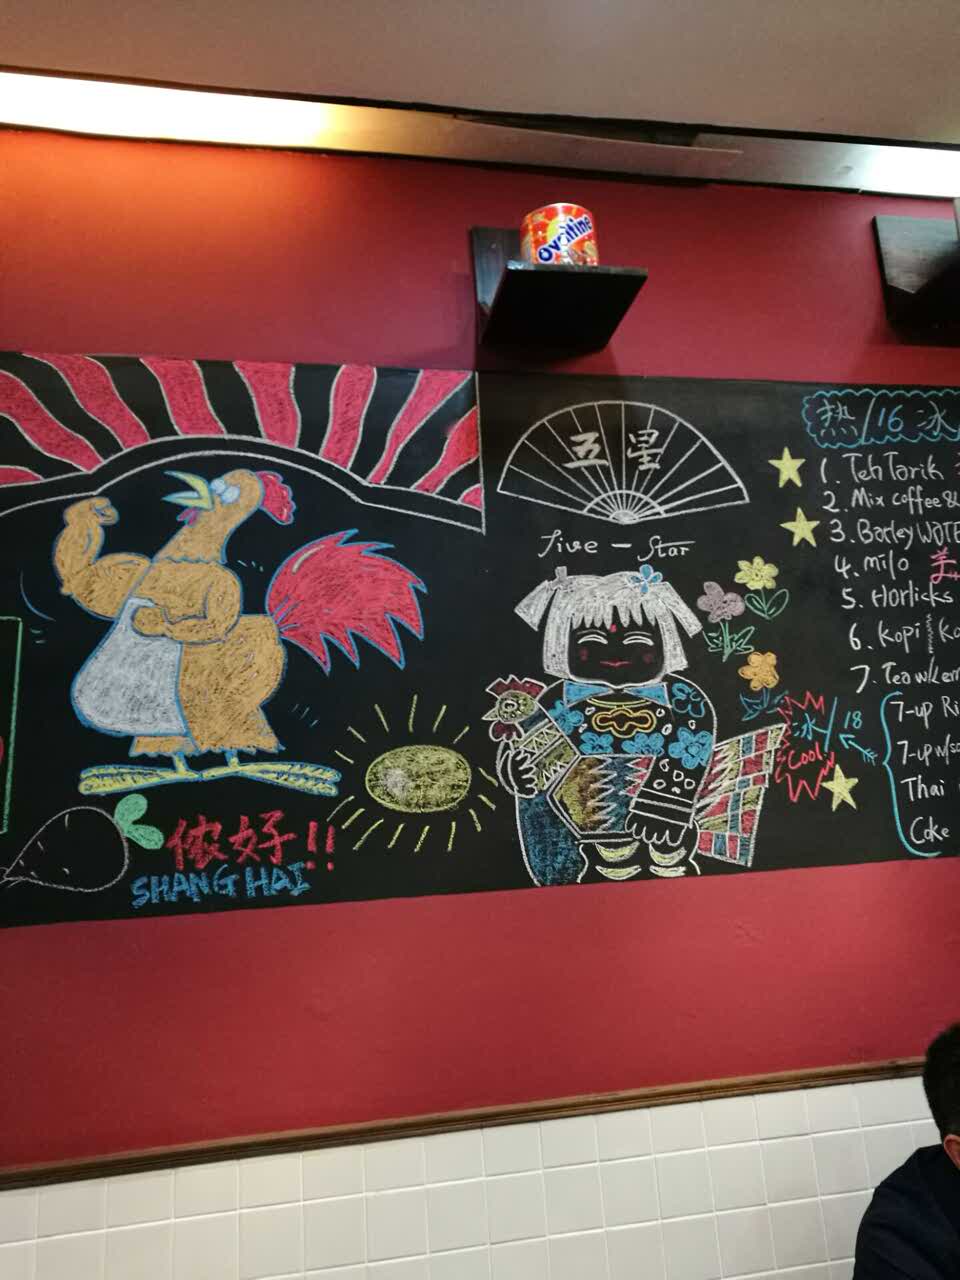 Ovaltine
五星
Five - Star
侬好!!
SHANG HAI
热/16 冰
1. Teh Tarik
2. Mix coffee &
3. Barley WATE
4. milo
5. Horlicks
6. kopi
7. Tea w/Lem
冰/18
Cool
7-up Ri
7-up w/sa
Thai
Coke